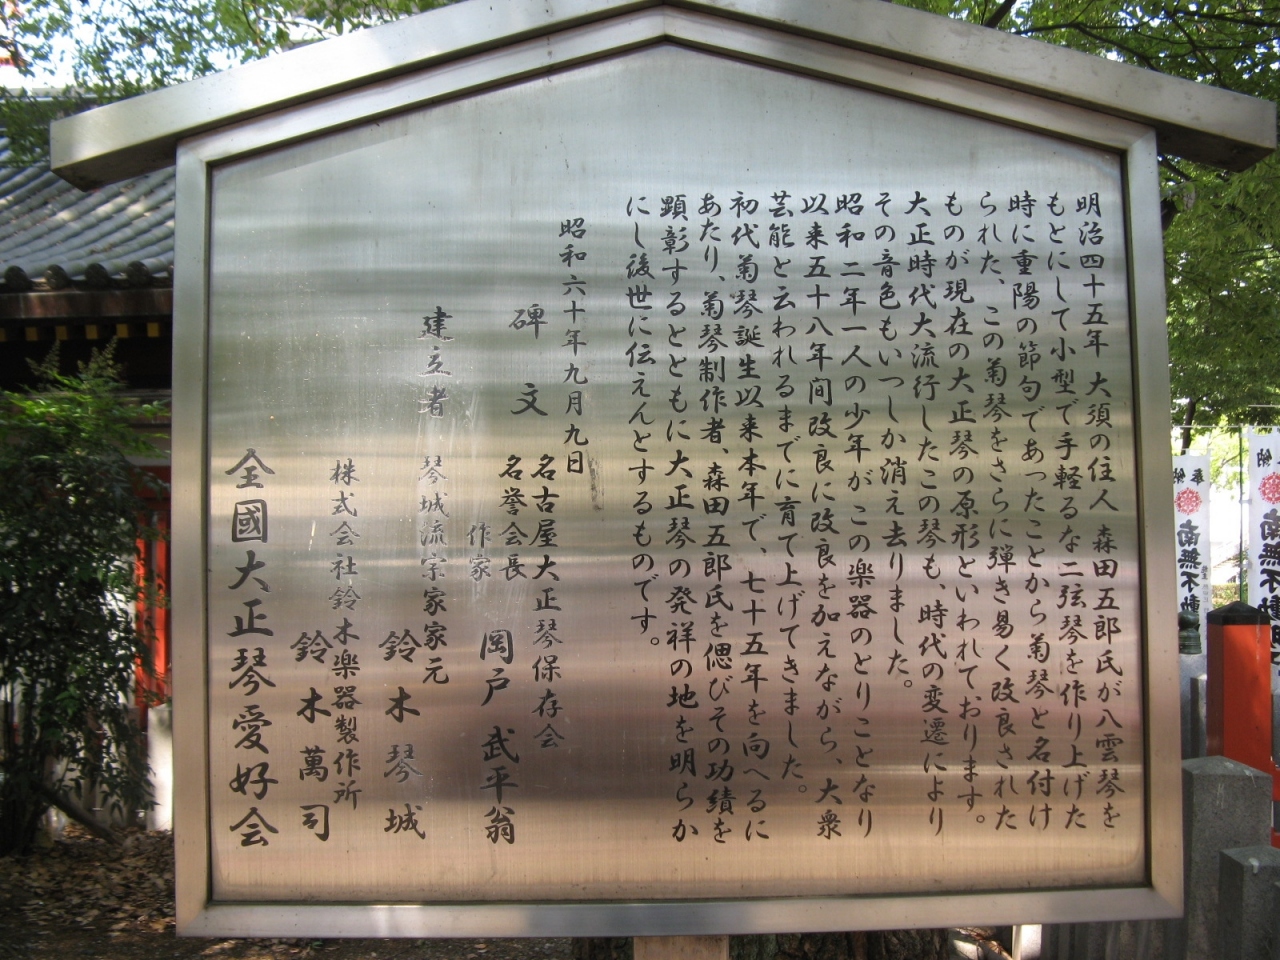 明治四十五年 大須の住人 森田五郎氏が八雲琴を
もとにして小型で手軽るな二弦琴を作り上げた
時に重陽の節句であったことから菊琴と名付け
られた、この菊琴をさらに弾き易く改良された
ものが現在の大正琴の原形といわれております。
大正時代大流行したこの琴も、時代の変遷により
その音色もいつしか消え去りました。
昭和二年一人の少年がこの楽器のとりことなり
以来五十八年間改良に改良を加えながら、大衆
芸能と云われるまでに育て上げてきました。
初代菊琴誕生以来本年で、七十五年を向へるに
あたり、菊琴制作者、森田五郎氏を偲びその功績を
顕彰するとともに大正琴の発祥の地を明らか
にし後世に伝えんとするものです。
昭和六十年九月九日
碑 文 名古屋大正琴保存会
名誉会長
作家 岡戸 武平翁
建立者 琴城流宗家家元
鈴木 琴城
株式会社鈴木楽器製作所
鈴木 萬司
全國大正琴愛好会
奉納
南無不動
納
南無不動